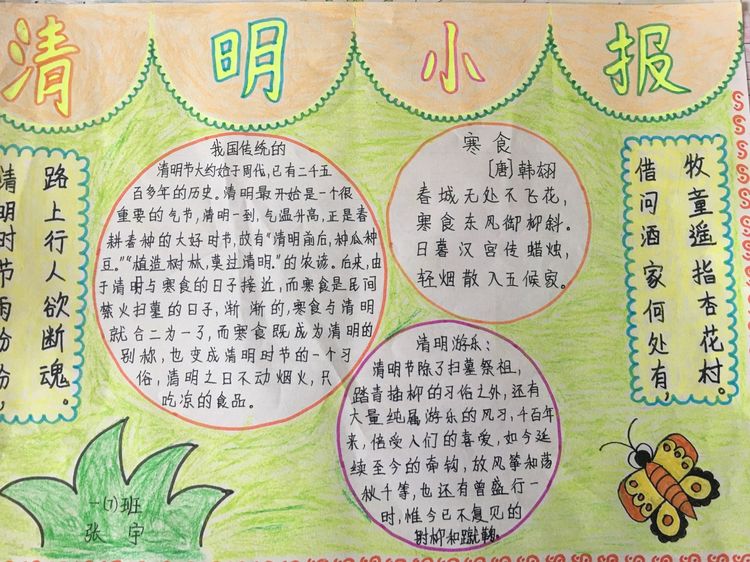 清明小报
清明时节雨纷纷,
路上行人欲断魂。
我国传统的
清明节大约始于周代,已有二千五
百多年的历史。清明最开始是一个很
重要的气节,清明一到,气温升高,正是春
耕春种的大好时节,故有“清明前后,种瓜种
豆。”“植造树林,莫过清明。”的农谚。后来,由
于清明与寒食的日子接近,而寒食是民间
禁火扫墓的日子,渐渐的,寒食与清明
就合二为一了,而寒食既成为清明的
别称,也变成清明时节的一个习
俗,清明之日不动烟火,只
吃凉的食品。
寒食
〔唐〕韩翃
春城无处不飞花,
寒食东风御柳斜。
日暮汉宫传蜡烛,
轻烟散入五候家。
清明游乐:
清明节除了扫墓祭祖,
踏青插柳的习俗之外,还有
大量纯属游乐的风习,千百年
来,倍受人们的喜爱,如今延
续至今的牵钩,放风筝和荡
秋千等,也还有曾盛行一
时,惟今已不复见的
射柳和蹴鞠。
借问酒家何处有,
牧童遥指杏花村。
一(7)班
张宇